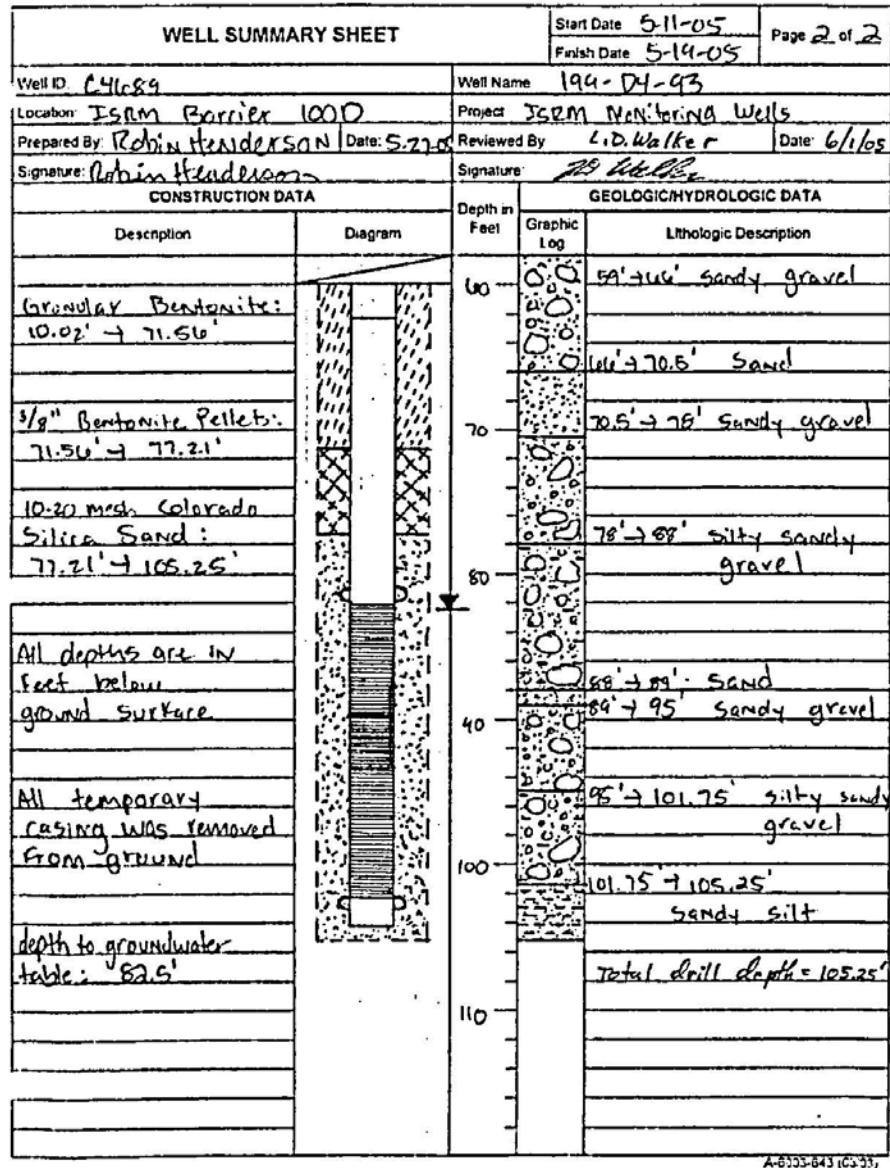 WELL SUMMARY SHEET
Start Date 5-11-05
Finish Date 5-19-05
Page 2 of 2
Well ID. C4689
Well Name 199-D4-93
Location ISRM Barrier 100D
Project ISRM Monitoring Wells
Prepared By: Robin Henderson Date: 5-27-05
Reviewed By L.D. Walker Date: 6/1/05
Signature: Robin Henderson
Signature: LD Walker
CONSTRUCTION DATA
Depth in Feet
GEOLOGIC/HYDROLOGIC DATA
Description
Diagram
Graphic Log
Lithologic Description
Granular Bentonite:
10.02' → 71.56'
3/8" Bentonite Pellets:
71.56' → 77.21'
10-20 mesh Colorado
Silica Sand:
77.21' → 105.25'
All depths are in
feet below
ground surface
All temporary
casing was removed
from ground
depth to groundwater
table: 82.5'
60
70
80
90
100
110
59' → 66' sandy gravel
66' → 70.5' Sand
70.5' → 78' Sandy gravel
78' → 88' silty sandy
gravel
88' → 89': Sand
89' → 95' Sandy gravel
95' → 101.75' silty sandy
gravel
101.75' → 105.25'
Sandy silt
Total drill depth = 105.25'
A-6003-643 (03/03)